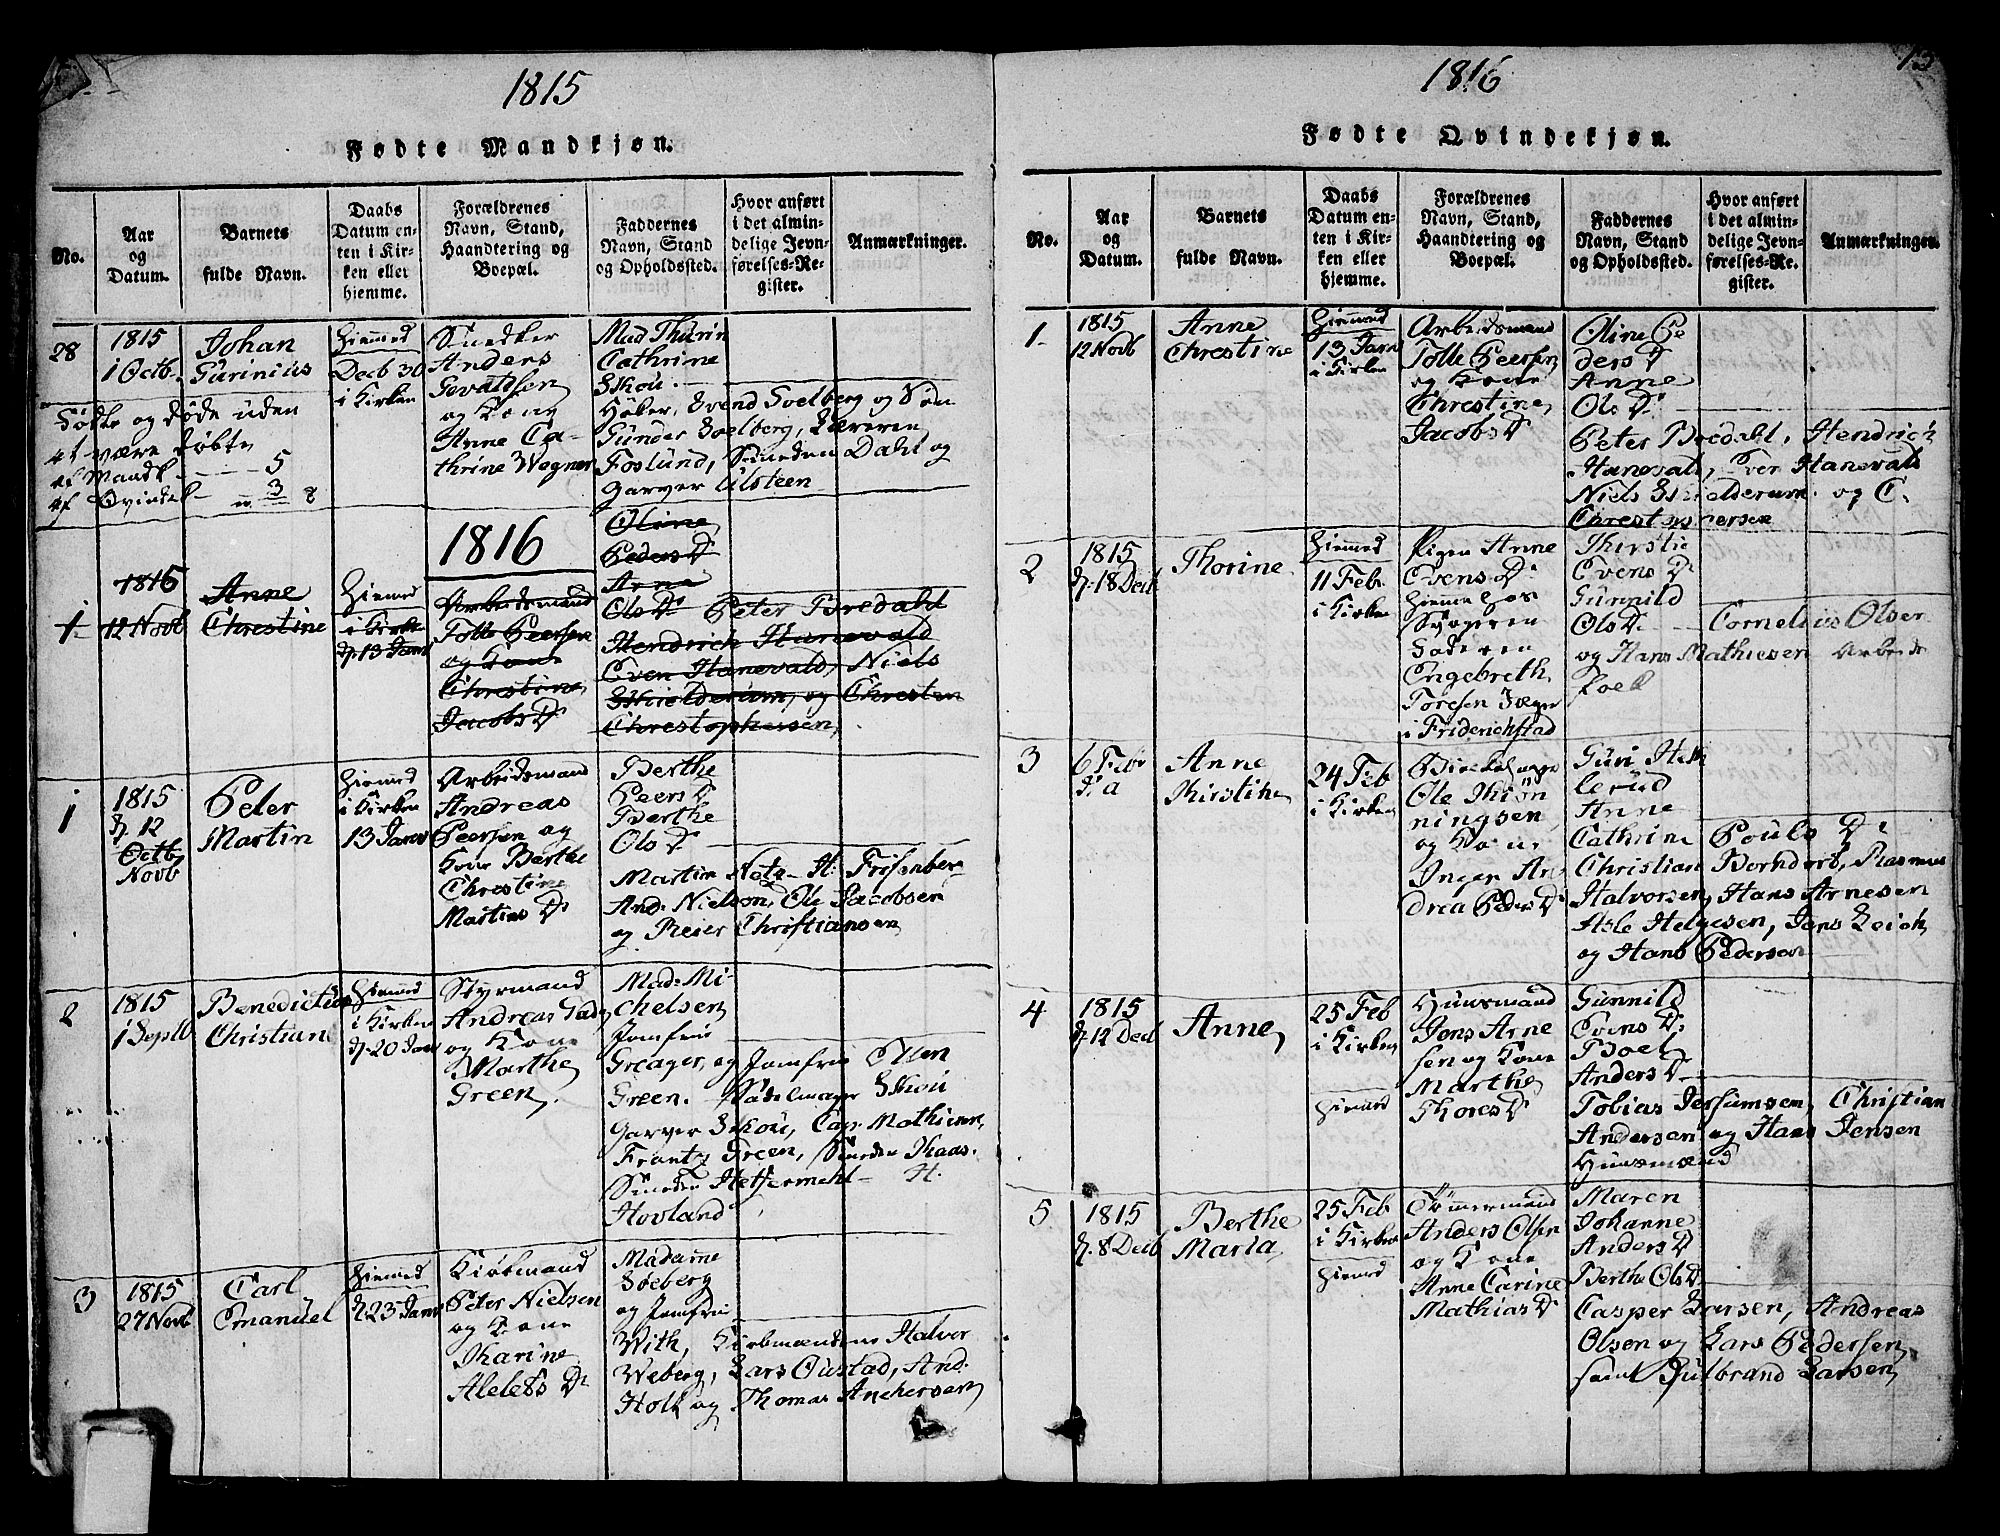 1815
Fødte Mandkjøn.
No.
Aar
og
Datum.
Barnets
fulde Navn.
Daabs
Datum en-
ten i Kir-
ken eller
hjemme.
Forældrenes
Navn, Stand,
Haandtering og
Boepæl.
Faddernes
Navn, Stand
og Opholdssted.
Hvor anført
i det almin-
delige Jevn-
førelses-Re-
gister.
Anmærkninger.
28
1815
1 Octb.
Johan
Gurinius
Hiemmed
Decb 30
i Kirken
Snedker
Anders
og Kone
Anne Ca-
thrine Wegner
Mad Thurin
Cathrine
Skou.
Høker, Svend Soelberg og Søn
Gunder Soelberg, Væveren
Foslund, Smeden Dahl og
Garver Ulsteen
Fødte og døde uden
at være døbte
af Mandk - 5
af Qvindek - 3 8
1816
1
1815
12 Novb
Anne
Chrestine
Hiemed
i Kirke
d. 13 Janv
Arbeidsmand
Tolle Peersen
og Kone
Chrestine
Jacobs D.
Oline
Peders D.
Anne
Ols D. Peter Bredahl
Hendrich Hanevald
Even Hanevald, Niels
Skielderum, og Chresten
Chrestophersen,
1
1815
d. 12
Octb
Novb
Peter
Martin
Hiemed
i Kirken
13 Janv
Arbeidsmand
Andreas
Peersen og
Kone Berthe
Chrestine
Martins D.
Berthe
Peers D.
Berthe
Ols D.
Martin Nata H. Frisenber
And. Nielson, Ole Jacobsen
og Reier Christiansen
2
1815
1 Septb
Benedictus
Christian
Hiemed
i Kirken
d. 20 Janv
Styrmand
Andreas
og Kone
Marthe
Green,
Mad: Mi-
chelsen
Jomfru
Greager, og Jomfru Ellen
Green. Nadelmager Skou
Garver Skou, Cap: Mathiesen,
Frantz Green, Smeden Kaas.
Smeden H.
Hovland
3
1815
27 Novb
Carl
Emanuel
Hiemed
d. 23 Janv
Kiøbmand
Peter Nielsen
og Kone
Karine
D.
Madame
Soeberg
og Jomfrue
With, Kiøbmændene Halvor
Weberg, Lars Oustad, And.
Holt og Thomas Anchersen
1816
13
Fødte Qvindekjøn.
No.
Aar
og
Datum.
Barnets
fulde Navn.
Daabs
Datum en-
ten i Kir-
ken eller
hjemme.
Forældrenes
Navn, Stand,
Haandtering og
Boepæl.
Faddernes
Navn, Stand
og Opholdssted.
Hvor anført
i det almin-
delige Jevn-
førelses-Re-
gister.
Anmærkninger.
1
1815
12 Novb
Anne
Chrestine
Hiemmed
13 Janv
i Kirken
Arbeidsmand
Tolle Peersen
og Kone
Chrestine
Jacobs D.
Oline Pe
ders D
Anne
Ols D.
Peter Bredahl, Hendrich
Hanevald, Even Hanevald
Niels Skielderum og C.
Chrestophersen
2
1815
d. 18 Decb
Thorine
Hiemmed
11 Feb.
i Kirken
Pigen Anne
Evens D.
Hiemme hos
Svogeren
Faderen
Engebreth
Toresen Jæger
i Friderichstad
Evens D.
Gunnild
Ols D. Cornelius Olsen
og Hans Mathiesen Arbeids
folk
3
6 Febr
d. a
Anne
Kirstine
24 Feb
i Kirken
Ole
ningsen,
og Kone
Inger An
drea Peders D.
Guri Hek
lerud
Anne
Cathrine Pouls D.
Christian Berndorf, Rasmus
Halvorsen, Hans Arnesen
Asle Helgesen, Jens Leich
og Hans Pedersen
4
1815
d. 12 Decb
Anne
25 Feb
i Kirken
Hiemed
Huusmand
Jens Arne
sen og Kone
Marthe
Thores D.
Gunnild
Evens D.
Boel
Anders D.
Tobias Christian
Andersen og Hans Jensen
Huusmænd
5
1815
d. 8 Decb
Berthe
Maria
25 Feb
i Kirken
Hiemed
Tømmermand
Anders Olsen
og Kone
Anne Carine
Mathias D.
Maren
Johanne
Anders D
Berthe Ols D.
Casper Larsen, Andreas
Olsen og Lars Pedersen,
samt Gulbrand Larsen